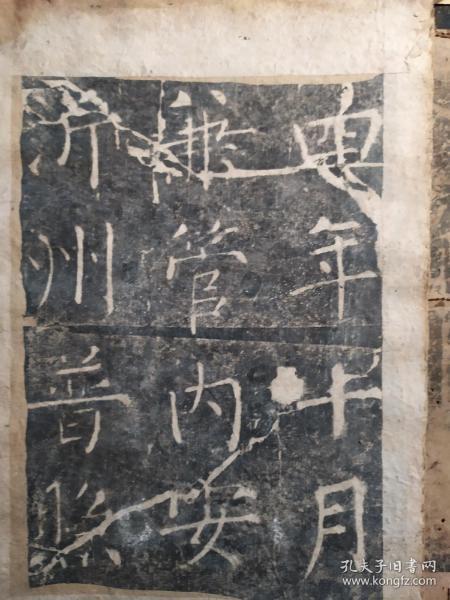 四年十月
兼管内安
沂州普照
孔夫子旧书网
www.kongfz.com